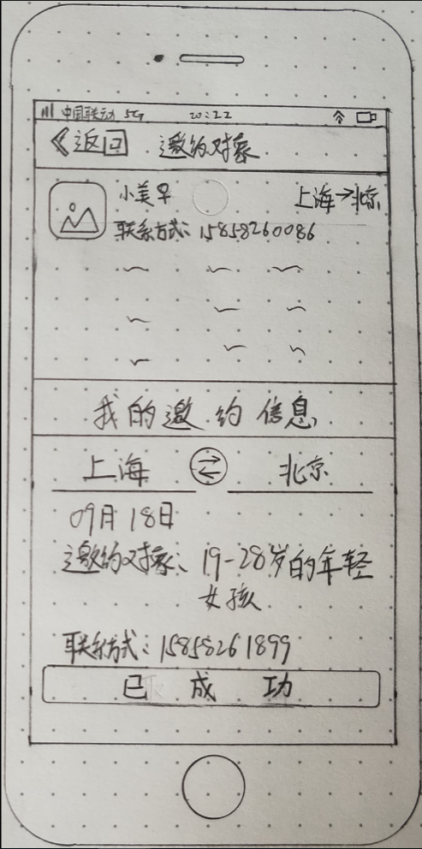 中国联动 5G 20:22
《返回 邀约对象
小美早 上海→北京
联系方式:15858260086
我的邀约信息
上海 北京
09月18日
邀约对象、19-28岁的年轻
女孩
联系方式:15858261899
已成功